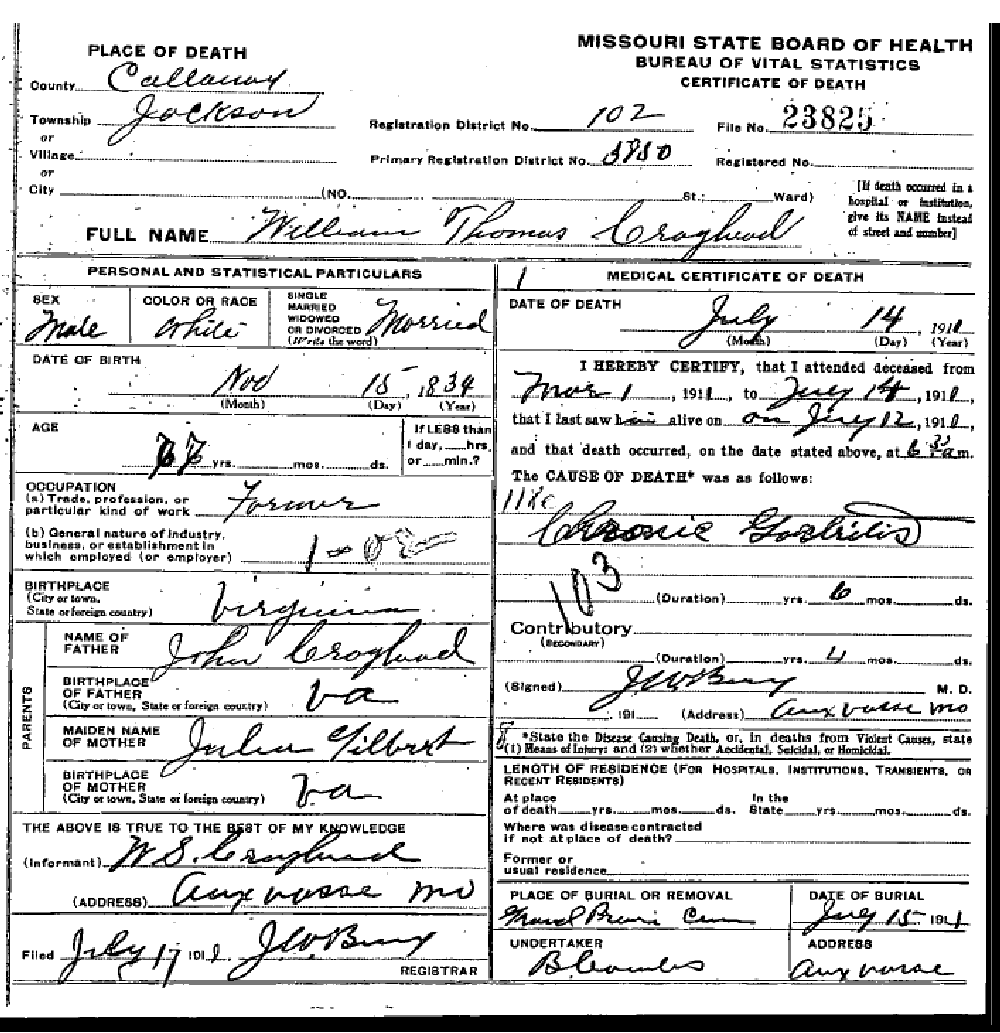 MISSOURI STATE BOARD OF HEALTH
BUREAU OF VITAL STATISTICS
CERTIFICATE OF DEATH
PLACE OF DEATH
County Callaway
Township Jackson
or
Village
or
City (NO. St.; Ward)
Registration District No. 102
File No. 23825
Primary Registration District No.
Registered No.
[If death occurred in a hospital or institution, give its NAME instead of street and number]
FULL NAME William Thomas Craghead
PERSONAL AND STATISTICAL PARTICULARS
SEX Male
COLOR OR RACE White
SINGLE MARRIED WIDOWED OR DIVORCED (Write the word) Married
DATE OF BIRTH
Nov 15, 1834
(Month) (Day) (Year)
AGE
yrs. mos. ds.
If LESS than 1 day, hrs. or min.?
OCCUPATION
(a) Trade, profession, or particular kind of work Farmer
(b) General nature of industry, business, or establishment in which employed (or employer)
BIRTHPLACE
(City or town, State or foreign country) Virginia
PARENTS
NAME OF FATHER John Craghead
BIRTHPLACE OF FATHER (City or town, State or foreign country) Va
MAIDEN NAME OF MOTHER Julia Gilbert
BIRTHPLACE OF MOTHER (City or town, State or foreign country) Va
THE ABOVE IS TRUE TO THE BEST OF MY KNOWLEDGE
(Informant) W.S. Craghead
(ADDRESS) Auxvasse Mo
Filed July 17 1911 REGISTRAR
MEDICAL CERTIFICATE OF DEATH
DATE OF DEATH
July 14, 1911
(Month) (Day) (Year)
I HEREBY CERTIFY, that I attended deceased from
Mar 1 1911, to July 14, 1911,
that I last saw him alive on July 12, 1911,
and that death occurred, on the date stated above, at m.
The CAUSE OF DEATH* was as follows:
Chronic Gastritis
103
(Duration) yrs. 6 mos. ds.
Contributory
(SECONDARY)
(Duration) yrs. 4 mos. ds.
(Signed) M. D.
191 (Address) Auxvasse Mo
*State the Disease Causing Death, or, in deaths from Violent Causes, state (1) Means of Injury; and (2) whether Accidental, Suicidal, or Homicidal.
LENGTH OF RESIDENCE (FOR HOSPITALS, INSTITUTIONS, TRANSIENTS, OR RECENT RESIDENTS)
At place of death yrs. mos. ds. In the State yrs. mos. ds.
Where was disease contracted if not at place of death?
Former or usual residence
PLACE OF BURIAL OR REMOVAL
DATE OF BURIAL
July 15 1911
UNDERTAKER
ADDRESS
Auxvasse